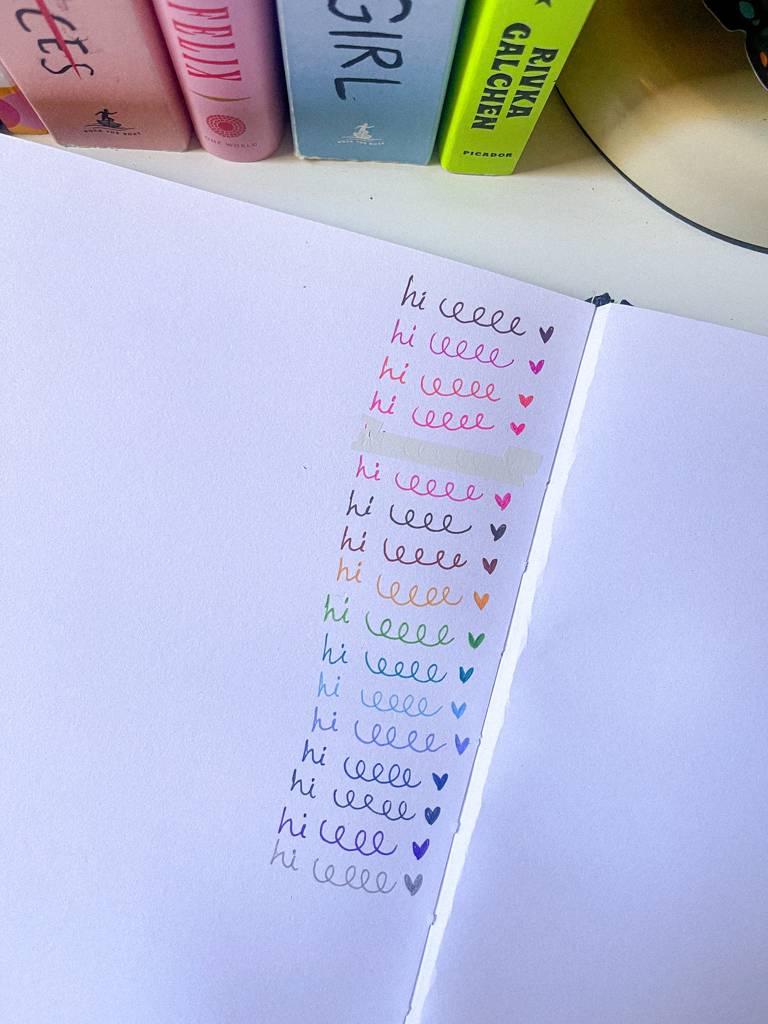 CES
ROCK THE BOAT
FELIX
ONE WORLD
GIRL
ROCK THE BOAT
RIVKA
GALCHEN
PICADOR
hi ♥
hi ♥
hi ♥
hi ♥
hi ♥
hi ♥
hi ♥
hi ♥
hi ♥
hi ♥
hi ♥
hi ♥
hi ♥
hi ♥
hi ♥
hi ♥